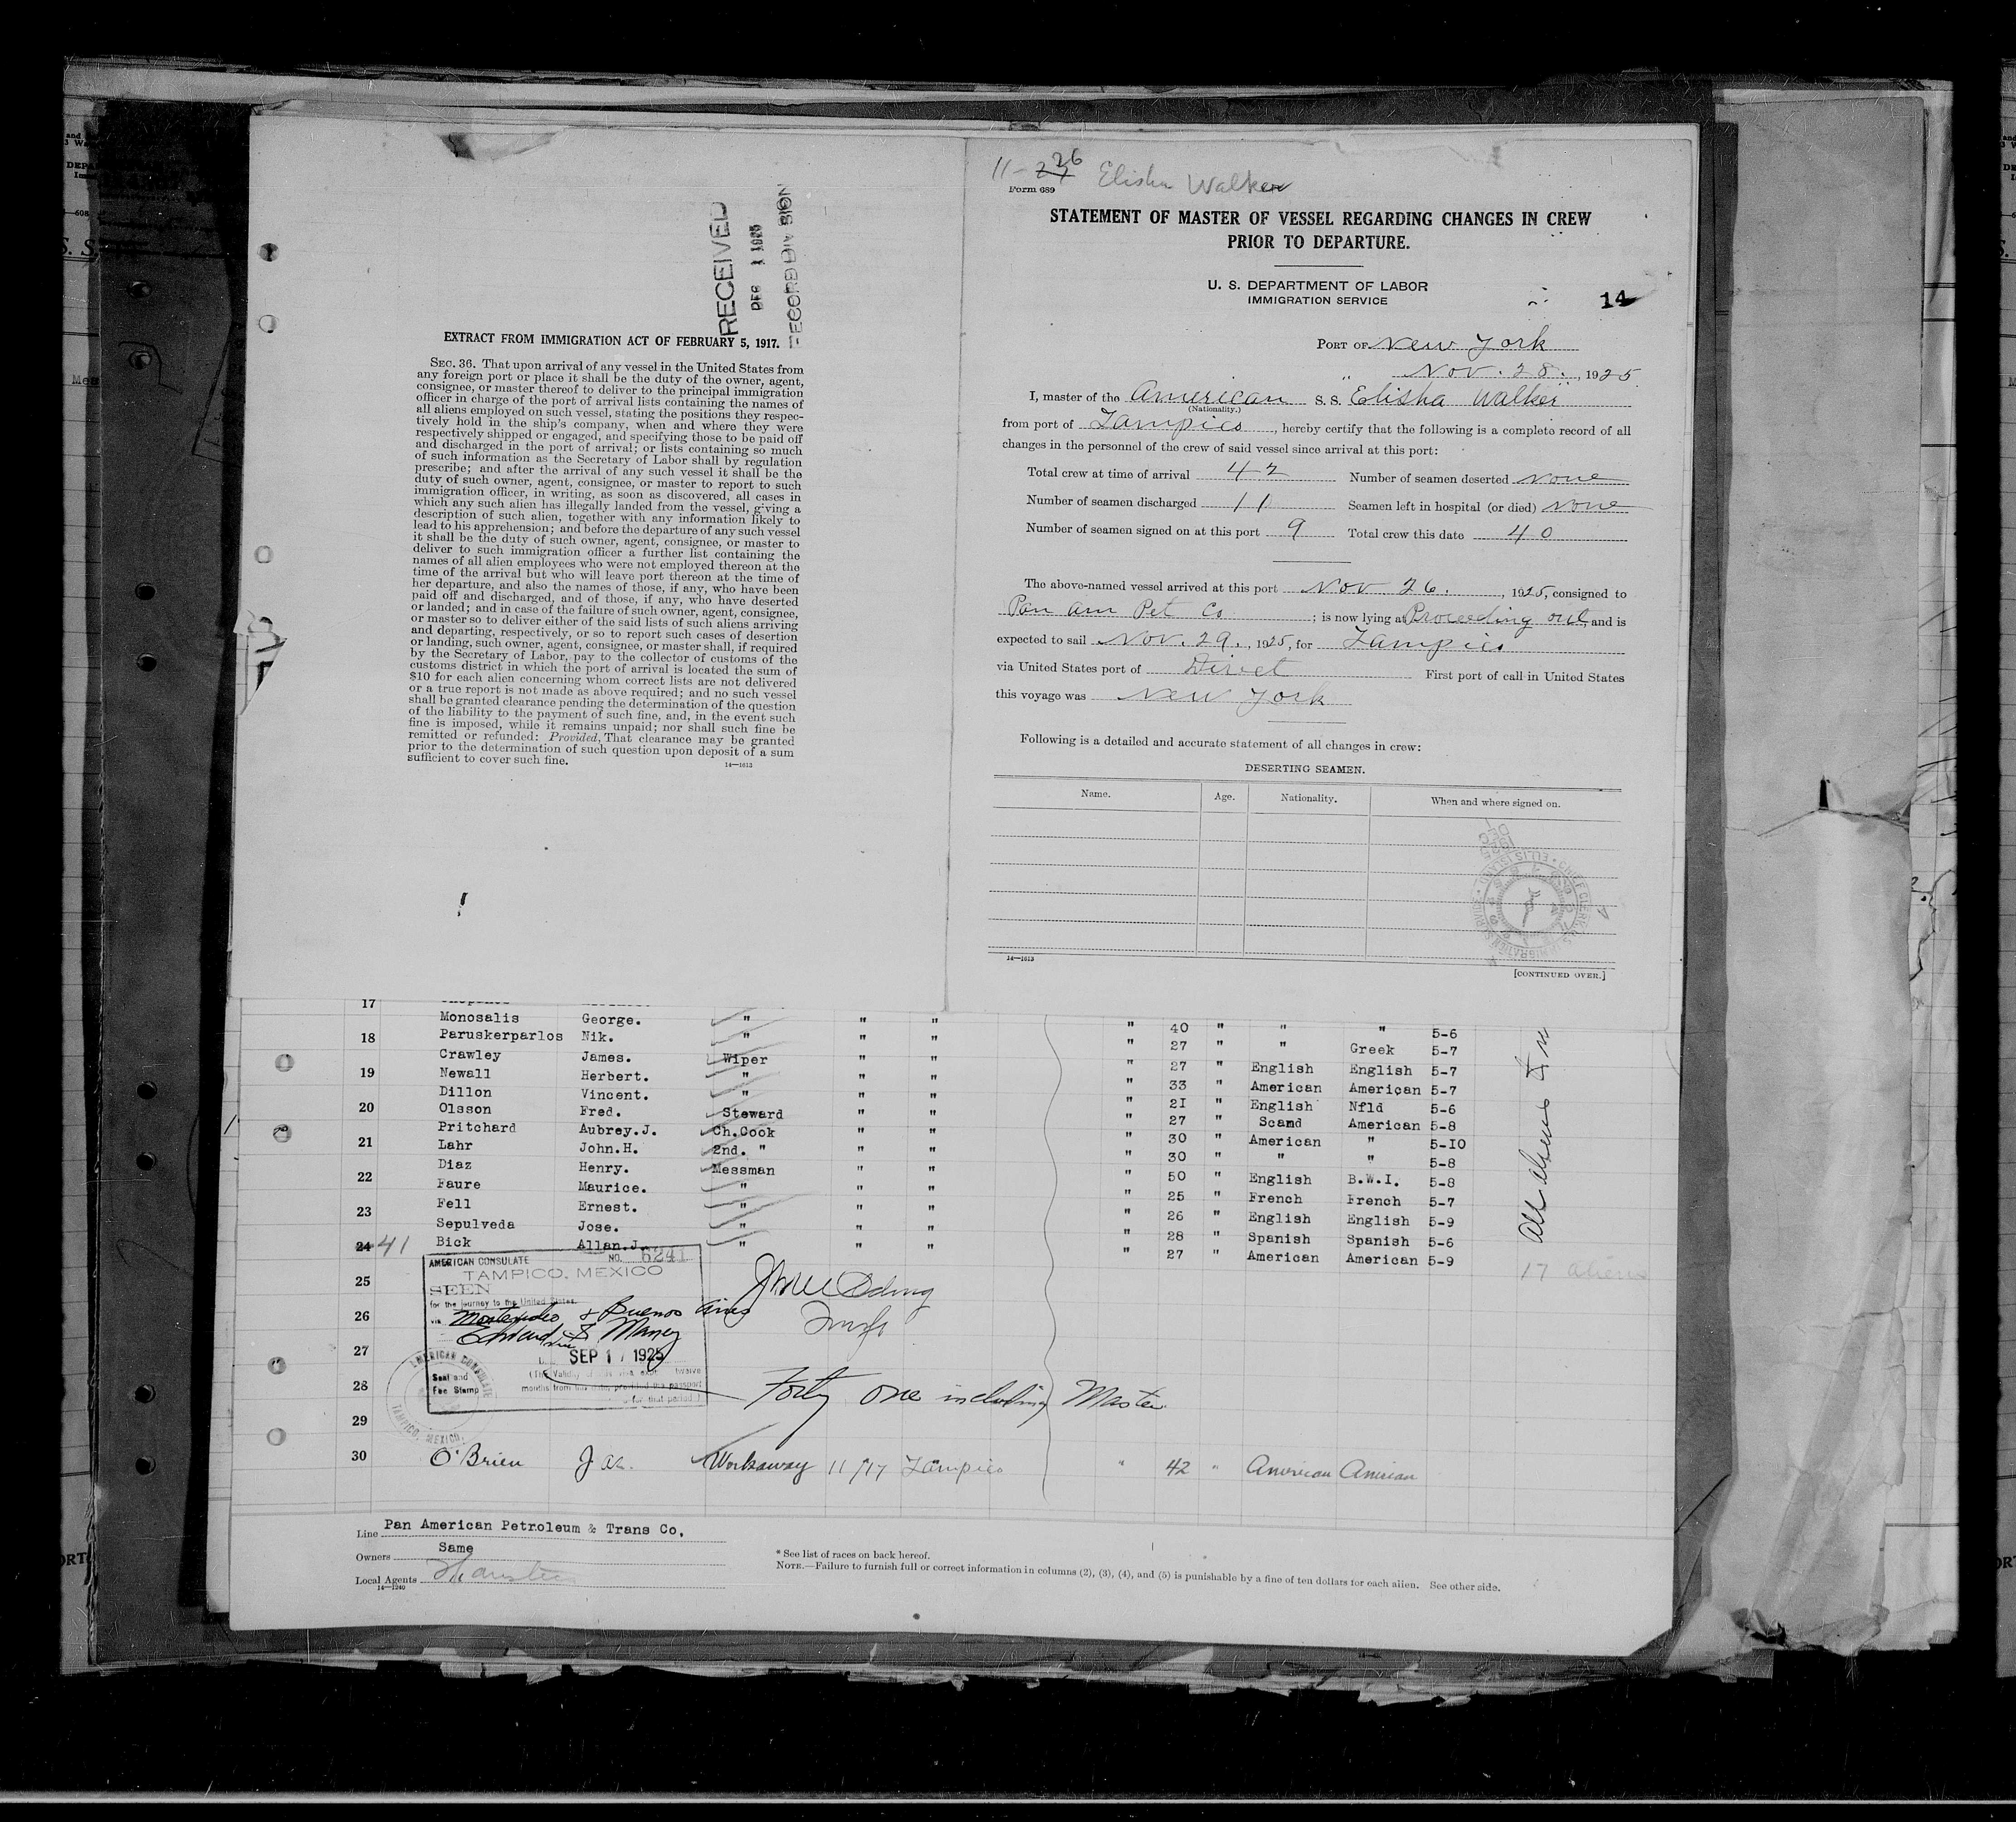 RECEIVED
DEC 1 1925
RECORD DIVISION
EXTRACT FROM IMMIGRATION ACT OF FEBRUARY 5, 1917.
SEC. 36. That upon arrival of any vessel in the United States from
any foreign port or place it shall be the duty of the owner, agent,
consignee, or master thereof to deliver to the principal immigration
officer in charge of the port of arrival lists containing the names of
all aliens employed on such vessel, stating the positions they respec-
tively hold in the ship's company, when and where they were
respectively shipped or engaged, and specifying those to be paid off
and discharged in the port of arrival; or lists containing so much
of such information as the Secretary of Labor shall by regulation
prescribe; and after the arrival of any such vessel it shall be the
duty of such owner, agent, consignee, or master to report to such
immigration officer, in writing, as soon as discovered, all cases in
which any such alien has illegally landed from the vessel, giving a
description of such alien, together with any information likely to
lead to his apprehension; and before the departure of any such vessel
it shall be the duty of such owner, agent, consignee, or master to
deliver to such immigration officer a further list containing the
names of all alien employees who were not employed thereon at the
time of the arrival but who will leave port thereon at the time of
her departure, and also the names of those, if any, who have been
paid off and discharged, and of those, if any, who have deserted
or landed; and in case of the failure of such owner, agent, consignee,
or master so to deliver either of the said lists of such aliens arriving
and departing, respectively, or so to report such cases of desertion
or landing, such owner, agent, consignee, or master shall, if required
by the Secretary of Labor, pay to the collector of customs of the
customs district in which the port of arrival is located the sum of
$10 for each alien concerning whom correct lists are not delivered
or a true report is not made as above required; and no such vessel
shall be granted clearance pending the determination of the question
of the liability to the payment of such fine, and, in the event such
fine is imposed, while it remains unpaid; nor shall such fine be
remitted or refunded: Provided, That clearance may be granted
prior to the determination of such question upon deposit of a sum
sufficient to cover such fine.
14—1613
11-26 Elisha Walker
Form 689
STATEMENT OF MASTER OF VESSEL REGARDING CHANGES IN CREW
PRIOR TO DEPARTURE.
U. S. DEPARTMENT OF LABOR
IMMIGRATION SERVICE
14
PORT OF New York
Nov. 28., 1925
I, master of the American S. S. Elisha Walker
(Nationality.)
from port of Tampico, hereby certify that the following is a complete record of all
changes in the personnel of the crew of said vessel since arrival at this port:
Total crew at time of arrival 42 Number of seamen deserted none
Number of seamen discharged 11 Seamen left in hospital (or died) none
Number of seamen signed on at this port 9 Total crew this date 40
The above-named vessel arrived at this port Nov 26., 1925, consigned to
Pan Am Pet Co; is now lying at Proceeding out, and is
expected to sail Nov. 29., 1925, for Tampico
via United States port of Direct First port of call in United States
this voyage was New York
Following is a detailed and accurate statement of all changes in crew:
DESERTING SEAMEN.
Name. Age. Nationality. When and where signed on.
14—1613
[CONTINUED OVER.]
17
Monosalis George. " " " " 40 " " " 5-6
18 Paruskerparlos Nik. " " " " 27 " " Greek 5-7
Crawley James. Wiper " " " 27 " English English 5-7
19 Newall Herbert. " " " " 33 " American American 5-7
Dillon Vincent. " " " " 21 " English Nfld 5-6
20 Olsson Fred. Steward " " " 27 " Scand American 5-8
Pritchard Aubrey.J. Ch.Cook " " " 30 " American " 5-10
21 Lahr John.H. 2nd. " " " " 30 " " " 5-8
Diaz Henry. Messman " " " 50 " English B.W.I. 5-8
22 Faure Maurice. " " " " 25 " French French 5-7
Fell Ernest. " " " " 26 " English English 5-9
23 Sepulveda Jose. " " " " 28 " Spanish Spanish 5-6
24 41 Bick Allan.J. " " " " 27 " American American 5-9
17 aliens
AMERICAN CONSULATE NO. 6241
TAMPICO, MEXICO
25
SEEN
for the journey to the United States.
26
via Montevideo & Buenos Aires
27
SEP 17 1925
AMERICAN CONSULATE
Seal and
Fee Stamp
TAMPICO, MEXICO.
28 Forty one including Master
29
30 O'Brien Jas. Workaway 11/17 Tampico " 42 " American American
Line Pan American Petroleum & Trans Co.
Owners Same
Local Agents
14—1240
* See list of races on back hereof.
NOTE.—Failure to furnish full or correct information in columns (2), (3), (4), and (5) is punishable by a fine of ten dollars for each alien. See other side.